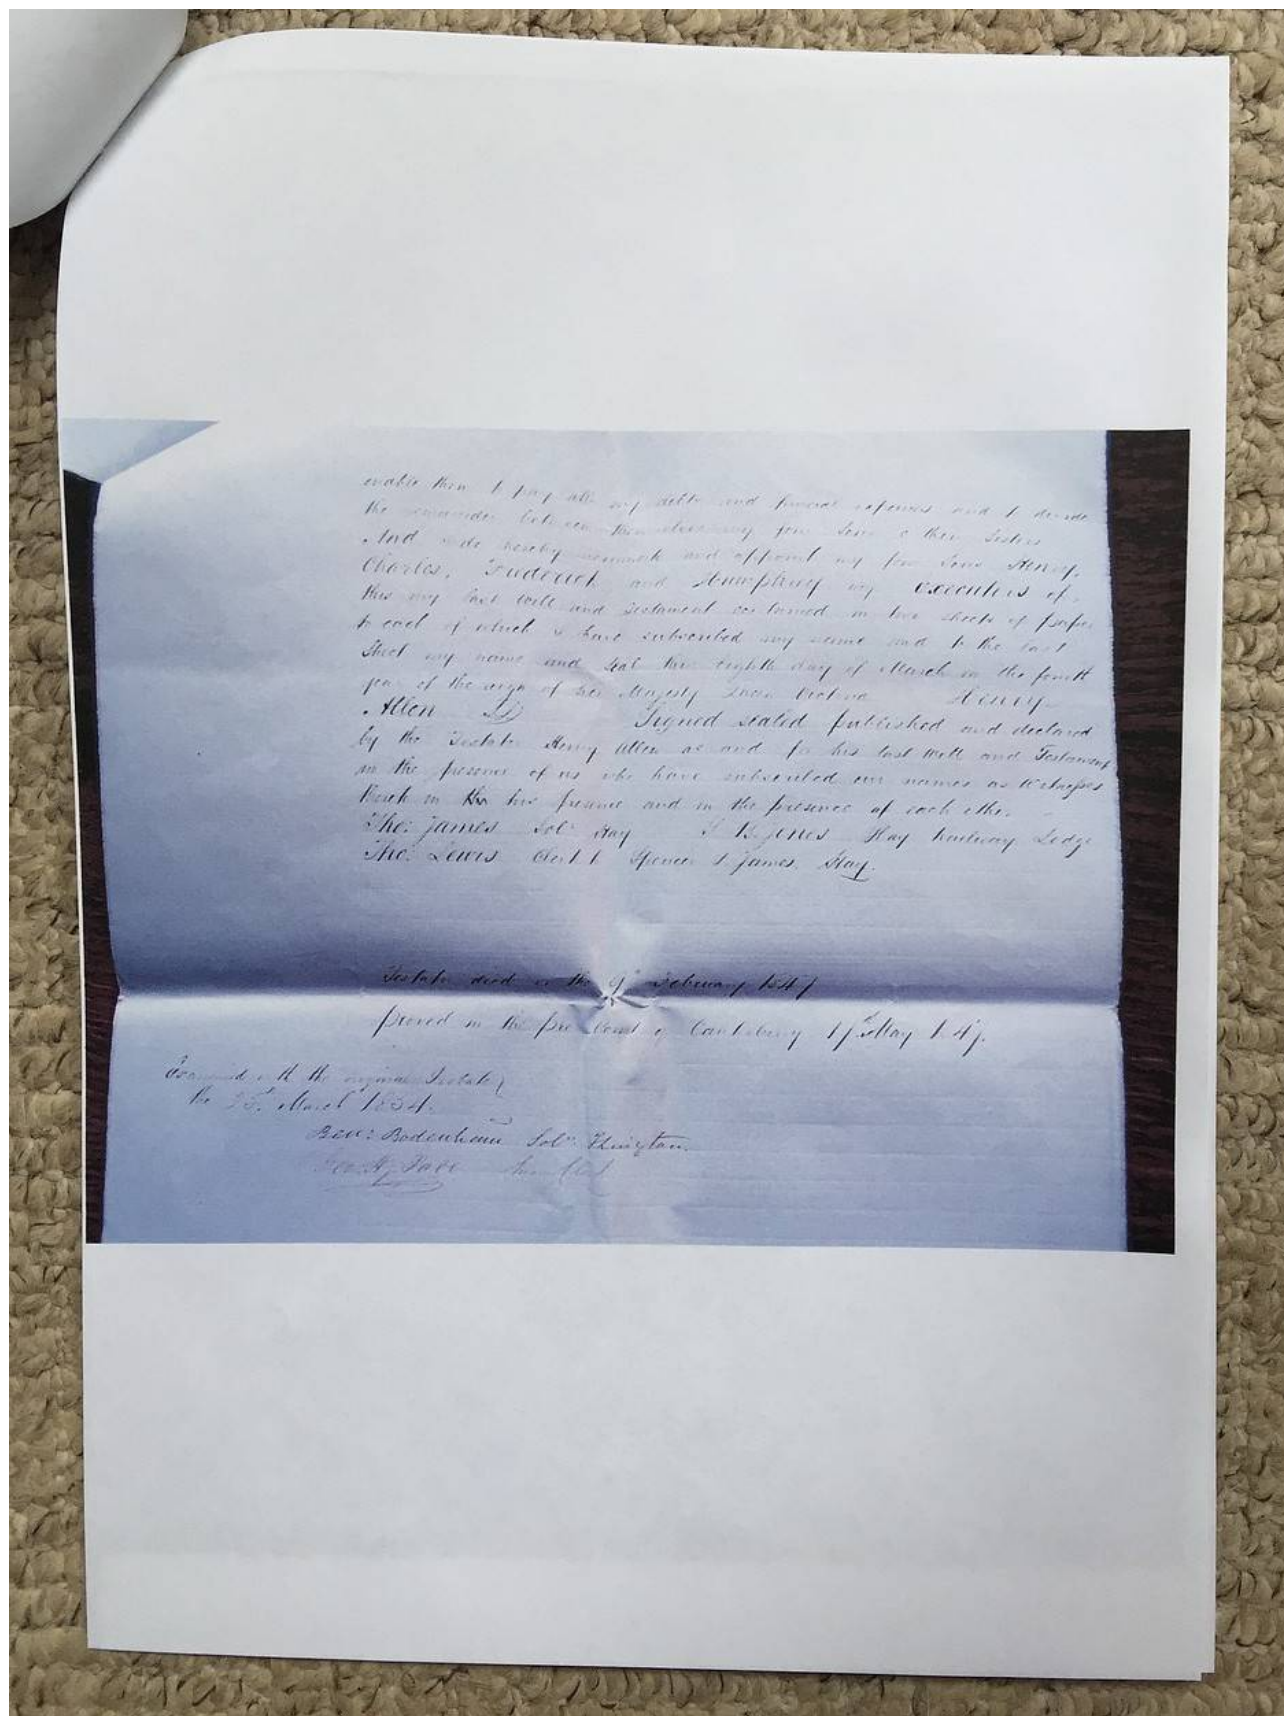 enable them to pay all my debts and funeral expenses and to divide
the remainder between themselves my four Sons & their Sisters
And I do hereby nominate and appoint my four Sons Henry,
Charles, Frederick and Humphrey my executors of
this my last will and testament contained in two sheets of paper
to each of which I have subscribed my name and to the last
Sheet my name and seal this Eighth day of March in the fourth
year of the reign of her Majesty Queen Victoria Henry
Allen Signed sealed published and declared
by the Testator Henry Allen as and for his last will and Testament
in the presence of us who have subscribed our names as Witnesses
in his presence and in the presence of each other.
Tho: James Solr Hay Jones Hay Railway Lodge
Tho: Lewis Clerk to Spencer & James. Hay.
Testator died on the 9th February 1847
proved in the Court of Canterbury 17th May 1847.
Examined with the original
the 25th March 1854.
Bodenham Solr Kington